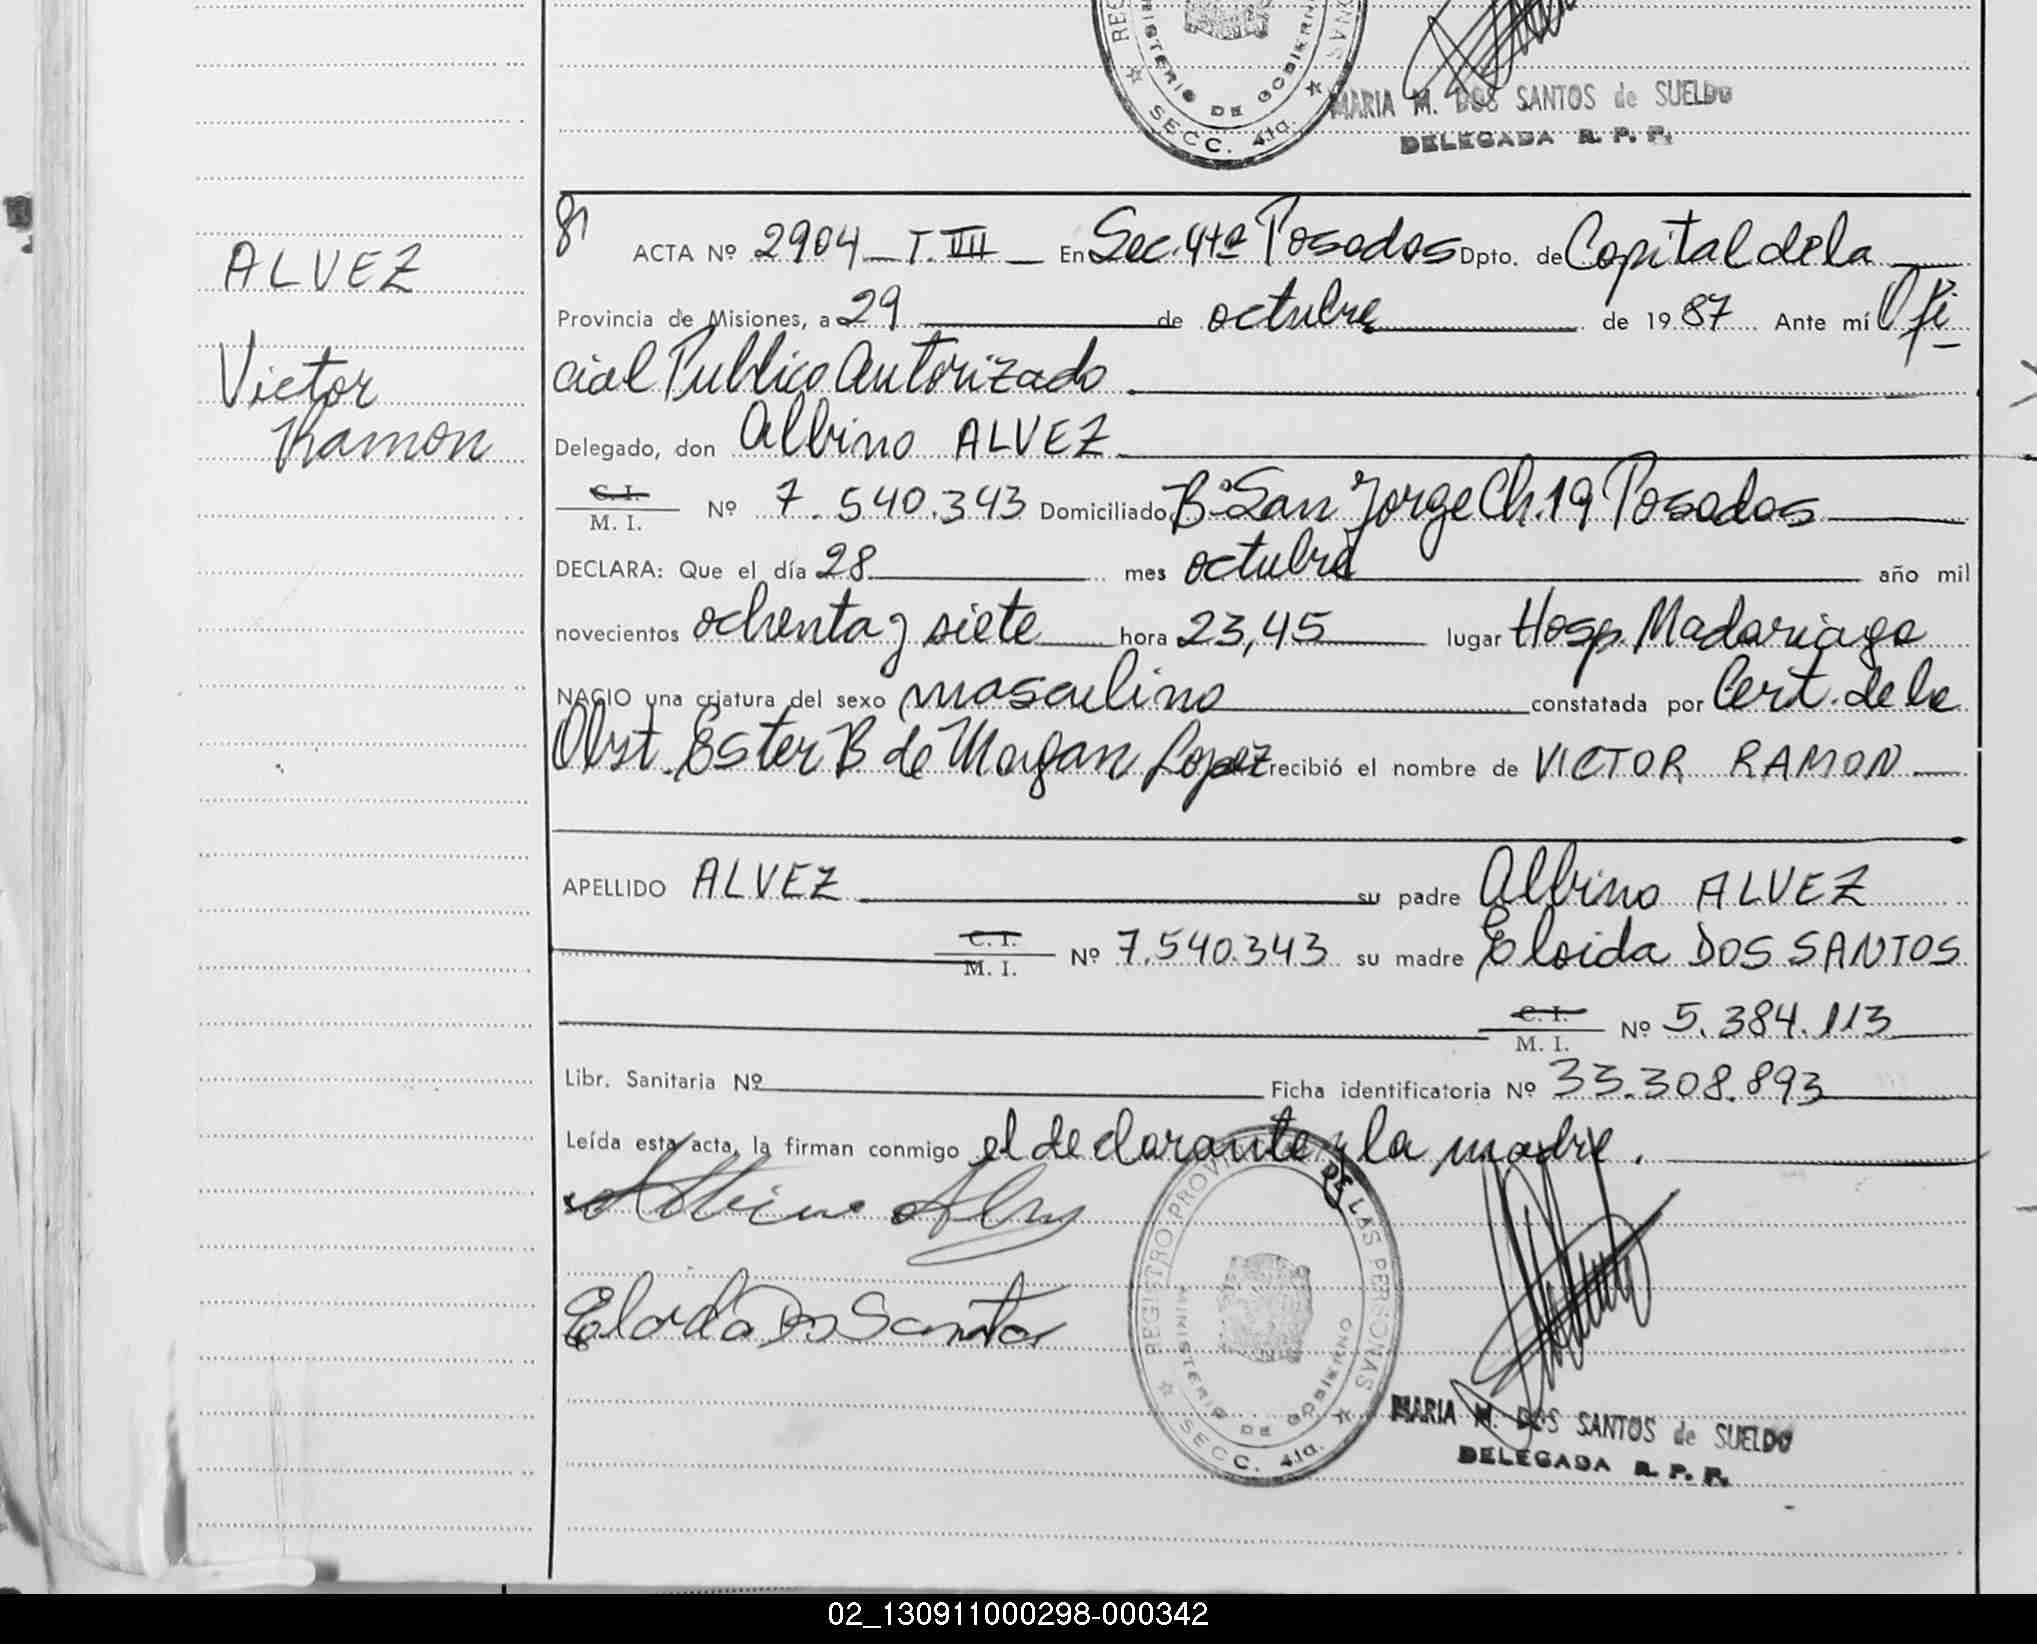 REG
NAS
MINISTERIO DE GOBIERN
☆ SECC. 4ta. ☆
MARIA M. DOS SANTOS de SUELDO
DELEGADA R. P. P.
ALVEZ
Victor
Ramon
81 ACTA Nº 2904 T. VII En Sec. 4ta Posadas Dpto. de Capital de la
Provincia de Misiones, a 29 de octubre de 1987 Ante mí Ofi
cial Publico Autorizado.
Delegado, don Albino ALVEZ
C. I.
M. I. Nº 7.540.343 Domiciliado Bº San Jorge Ch. 19 Posadas
DECLARA: Que el día 28 mes octubre año mil
novecientos ochenta y siete hora 23,45 lugar Hosp. Madariaga
NACIO una criatura del sexo masculino constatada por Cert. de la
Obst. Ester B de Magan Lopez recibió el nombre de VICTOR RAMON
APELLIDO ALVEZ su padre Albino ALVEZ
C. I.
M. I. Nº 7.540.343 su madre Eloida DOS SANTOS
C. I.
M. I. Nº 5.384.113
Libr. Sanitaria Nº Ficha identificatoria Nº 33.308.893
Leída esta acta, la firman conmigo el declarante y la madre.
Albino Alvez
Eloida Dos Santos
REGISTRO PROVINCIAL DE LAS PERSONAS
MINISTERIO DE GOBIERNO
☆ SECC. 4ta. ☆
MARIA M. DOS SANTOS de SUELDO
DELEGADA R. P. P.
02_130911000298-000342